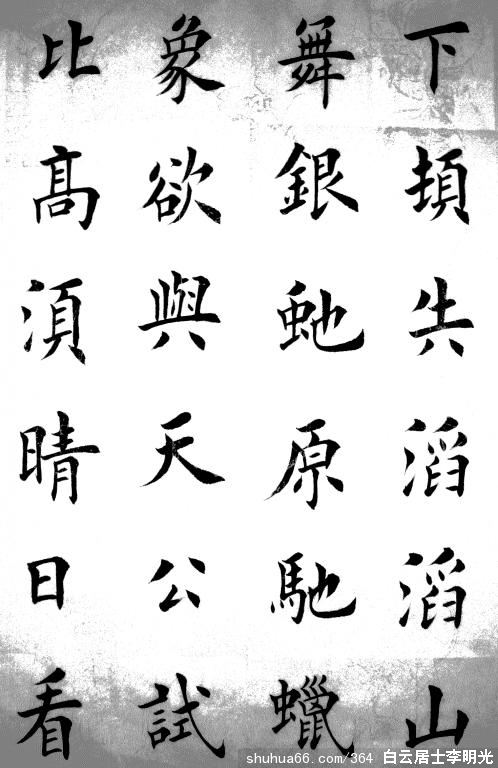 下頓失滔滔山
舞銀虵原馳蠟
象欲與天公試
比髙湏晴日看
shuhua66.com/364 白云居士李明光